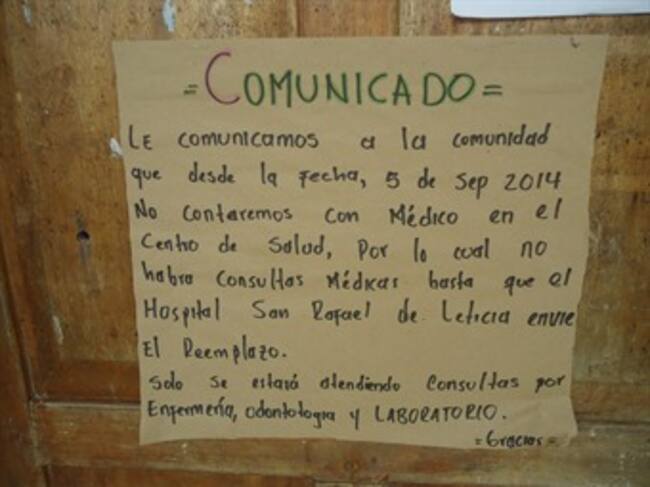 = COMUNICADO =
LE comunicamos a la comunidad
que desde la Fecha, 5 de Sep 2014
No contaremos con Médico en el
Centro de Salud, Por lo cual no
habra Consultas Médicas hasta que el
Hospital San Rafael de Leticia envie
El Reemplazo.
Solo se estará atendiendo Consultas por
Enfermería, odontologia y LABORATORIO.
= Gracias =